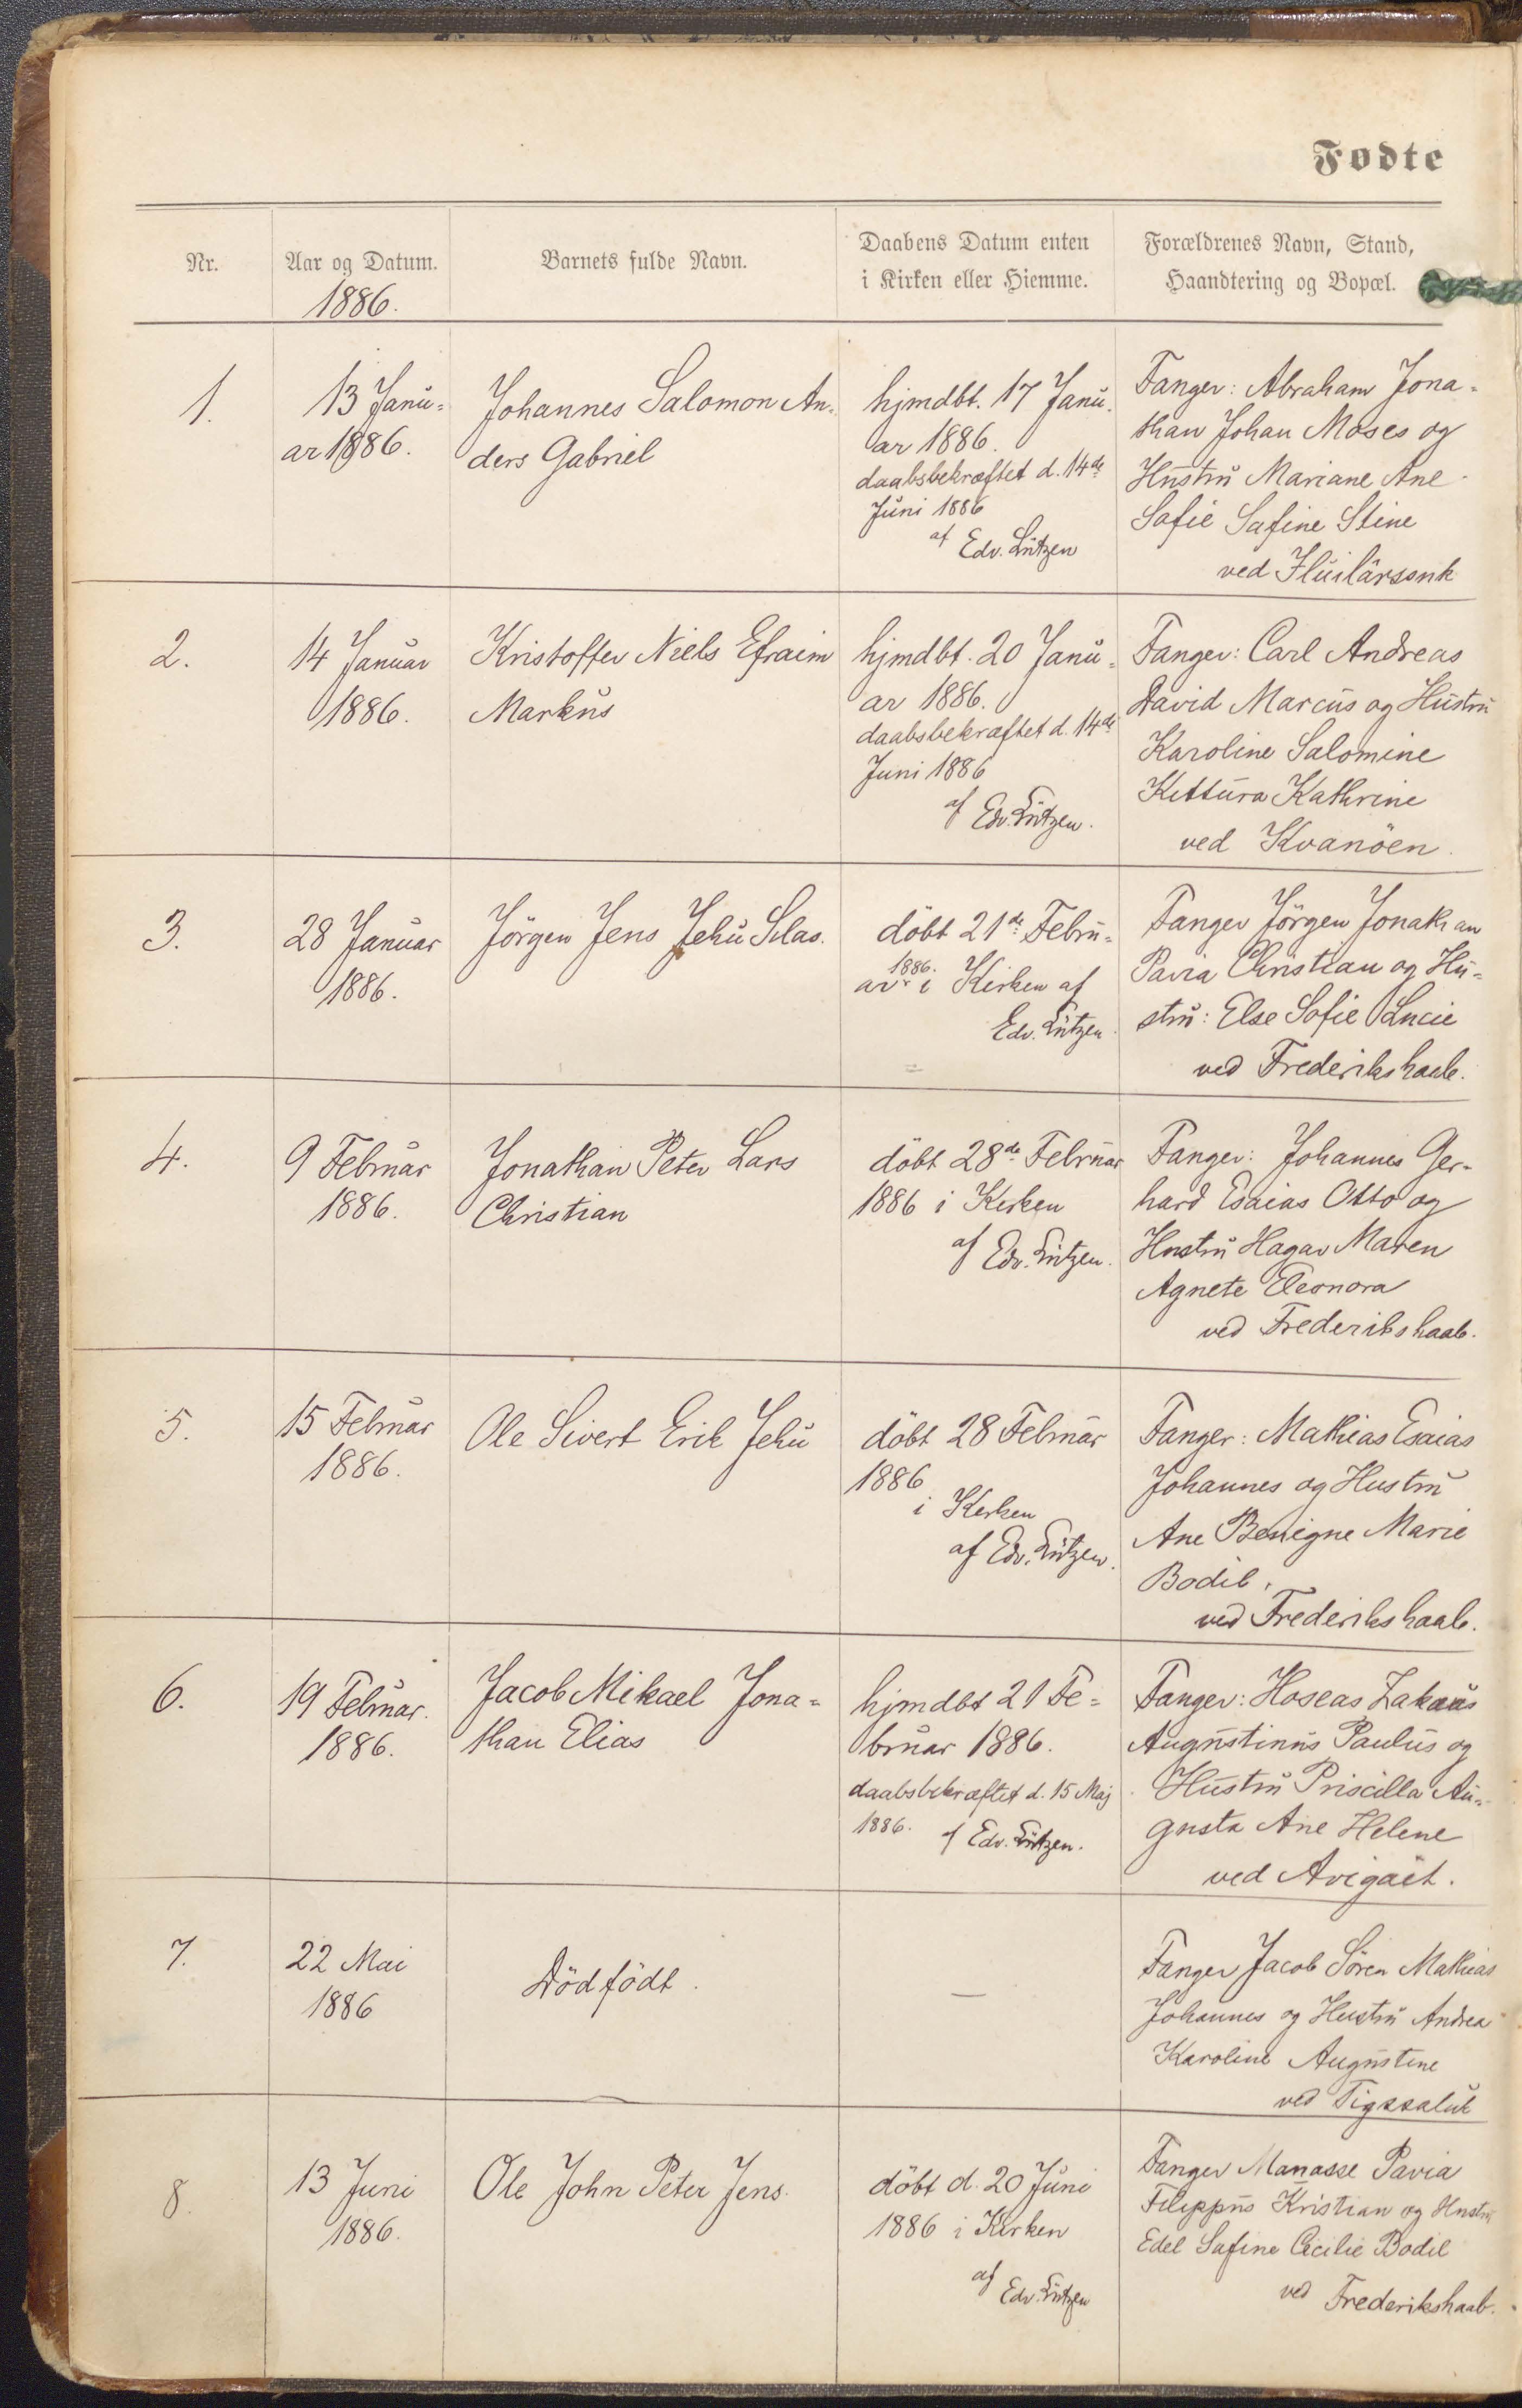 Fødte
Nr.
Aar og Datum.
1886.
Barnets fulde Navn.
Daabens Datum enten
i Kirken eller Hiemme.
Forældrenes Navn, Stand,
Haandtering og Bopæl.
1.
13 Janu=
ar 1886.
Johannes Salomon An=
ders Gabriel
hjmdbt. 17 Janu=
ar 1886.
daabsbekræftet d. 14de
Juni 1886
af Edv. Lützen
Fanger: Abraham Jona=
than Johan Moses og
Hustru Mariane Ane
Sofie Safine Stine
ved Iluilârssuk
2.
14 Januar
1886.
Kristoffer Niels Efraim
Markus
hjmdbt. 20 Janu=
ar 1886.
daabsbekræftet d. 14de
Juni 1886
af Edv. Lützen.
Fanger: Carl Andreas
David Marcus og Hustru
Karoline Salomine
Kettura Kathrine
ved Kvanöen.
3.
28 Januar
1886.
Jörgen Jens Jehu Silas.
döbt 21de Febru=
ar 1886. i Kirken af
Edv. Lützen.
Fanger Jörgen Jonathan
Pavia Christian og Hu=
stru: Else Sofie Lucie
ved Frederikshaab.
4.
9 Februar
1886.
Jonathan Peter Lars
Christian
döbt 28de Februar
1886 i Kirken
af Edv. Lützen.
Fanger: Johannes Ger=
hard Esaias Otto og
Hustru Hagar Maren
Agnete Eleonora
ved Frederikshaab.
5.
15 Februar
1886.
Ole Sivert Erik Jehu
döbt 28 Februar
1886
i Kirken
af Edv. Lützen.
Fanger: Mathias Esaias
Johannes og Hustru
Ane Benigne Marie
Bodil.
ved Frederikshaab.
6.
19 Februar.
1886.
Jacob Mikael Jona=
than Elias
hjmdbt 21 Fe=
bruar 1886.
daabsbekræftet d. 15 Maj
1886. af Edv. Lützen.
Fanger: Hoseas Zakæus
Augustinus Paulus og
Hustru Priscilla Au=
gusta Ane Helene
ved Avigait.
7.
22 Mai
1886
Dödfödt.
—
Fanger Jacob Sören Mathias
Johannes og Hustru Andrea
Karoline Augustine
ved Tigssaluk
8.
13 Juni
1886.
Ole John Peter Jens.
döbt d. 20 Juni
1886 i Kirken
af Edv. Lützen
Fanger Manasse Pavia
Filippus Kristian og Hustru
Edel Safine Cecilie Bodil
ved Frederikshaab.